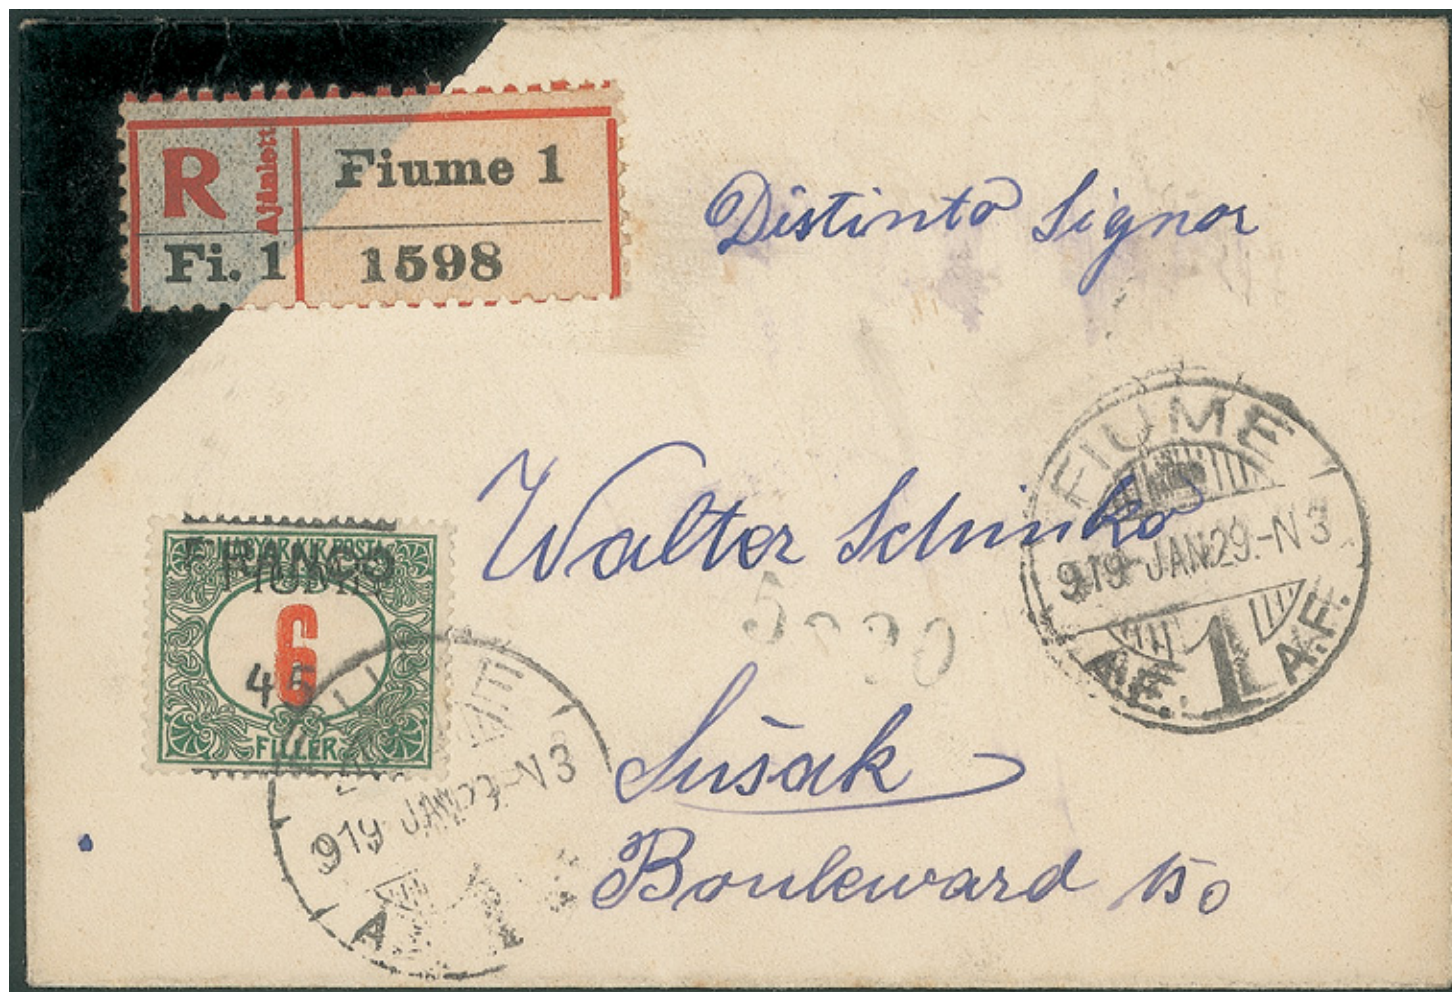 R Ajánlott Fiume 1
Fi. 1 1598
Distinto Signor
Walter Schinko
Sušak
Bouleward 150
FIUME
919 JAN 29.-N 3
1
A.F.
MAGYAR KIR. POSTA
FRANCO
FIUME
6
45
FILLÉR
919 JAN -N 3
A
1